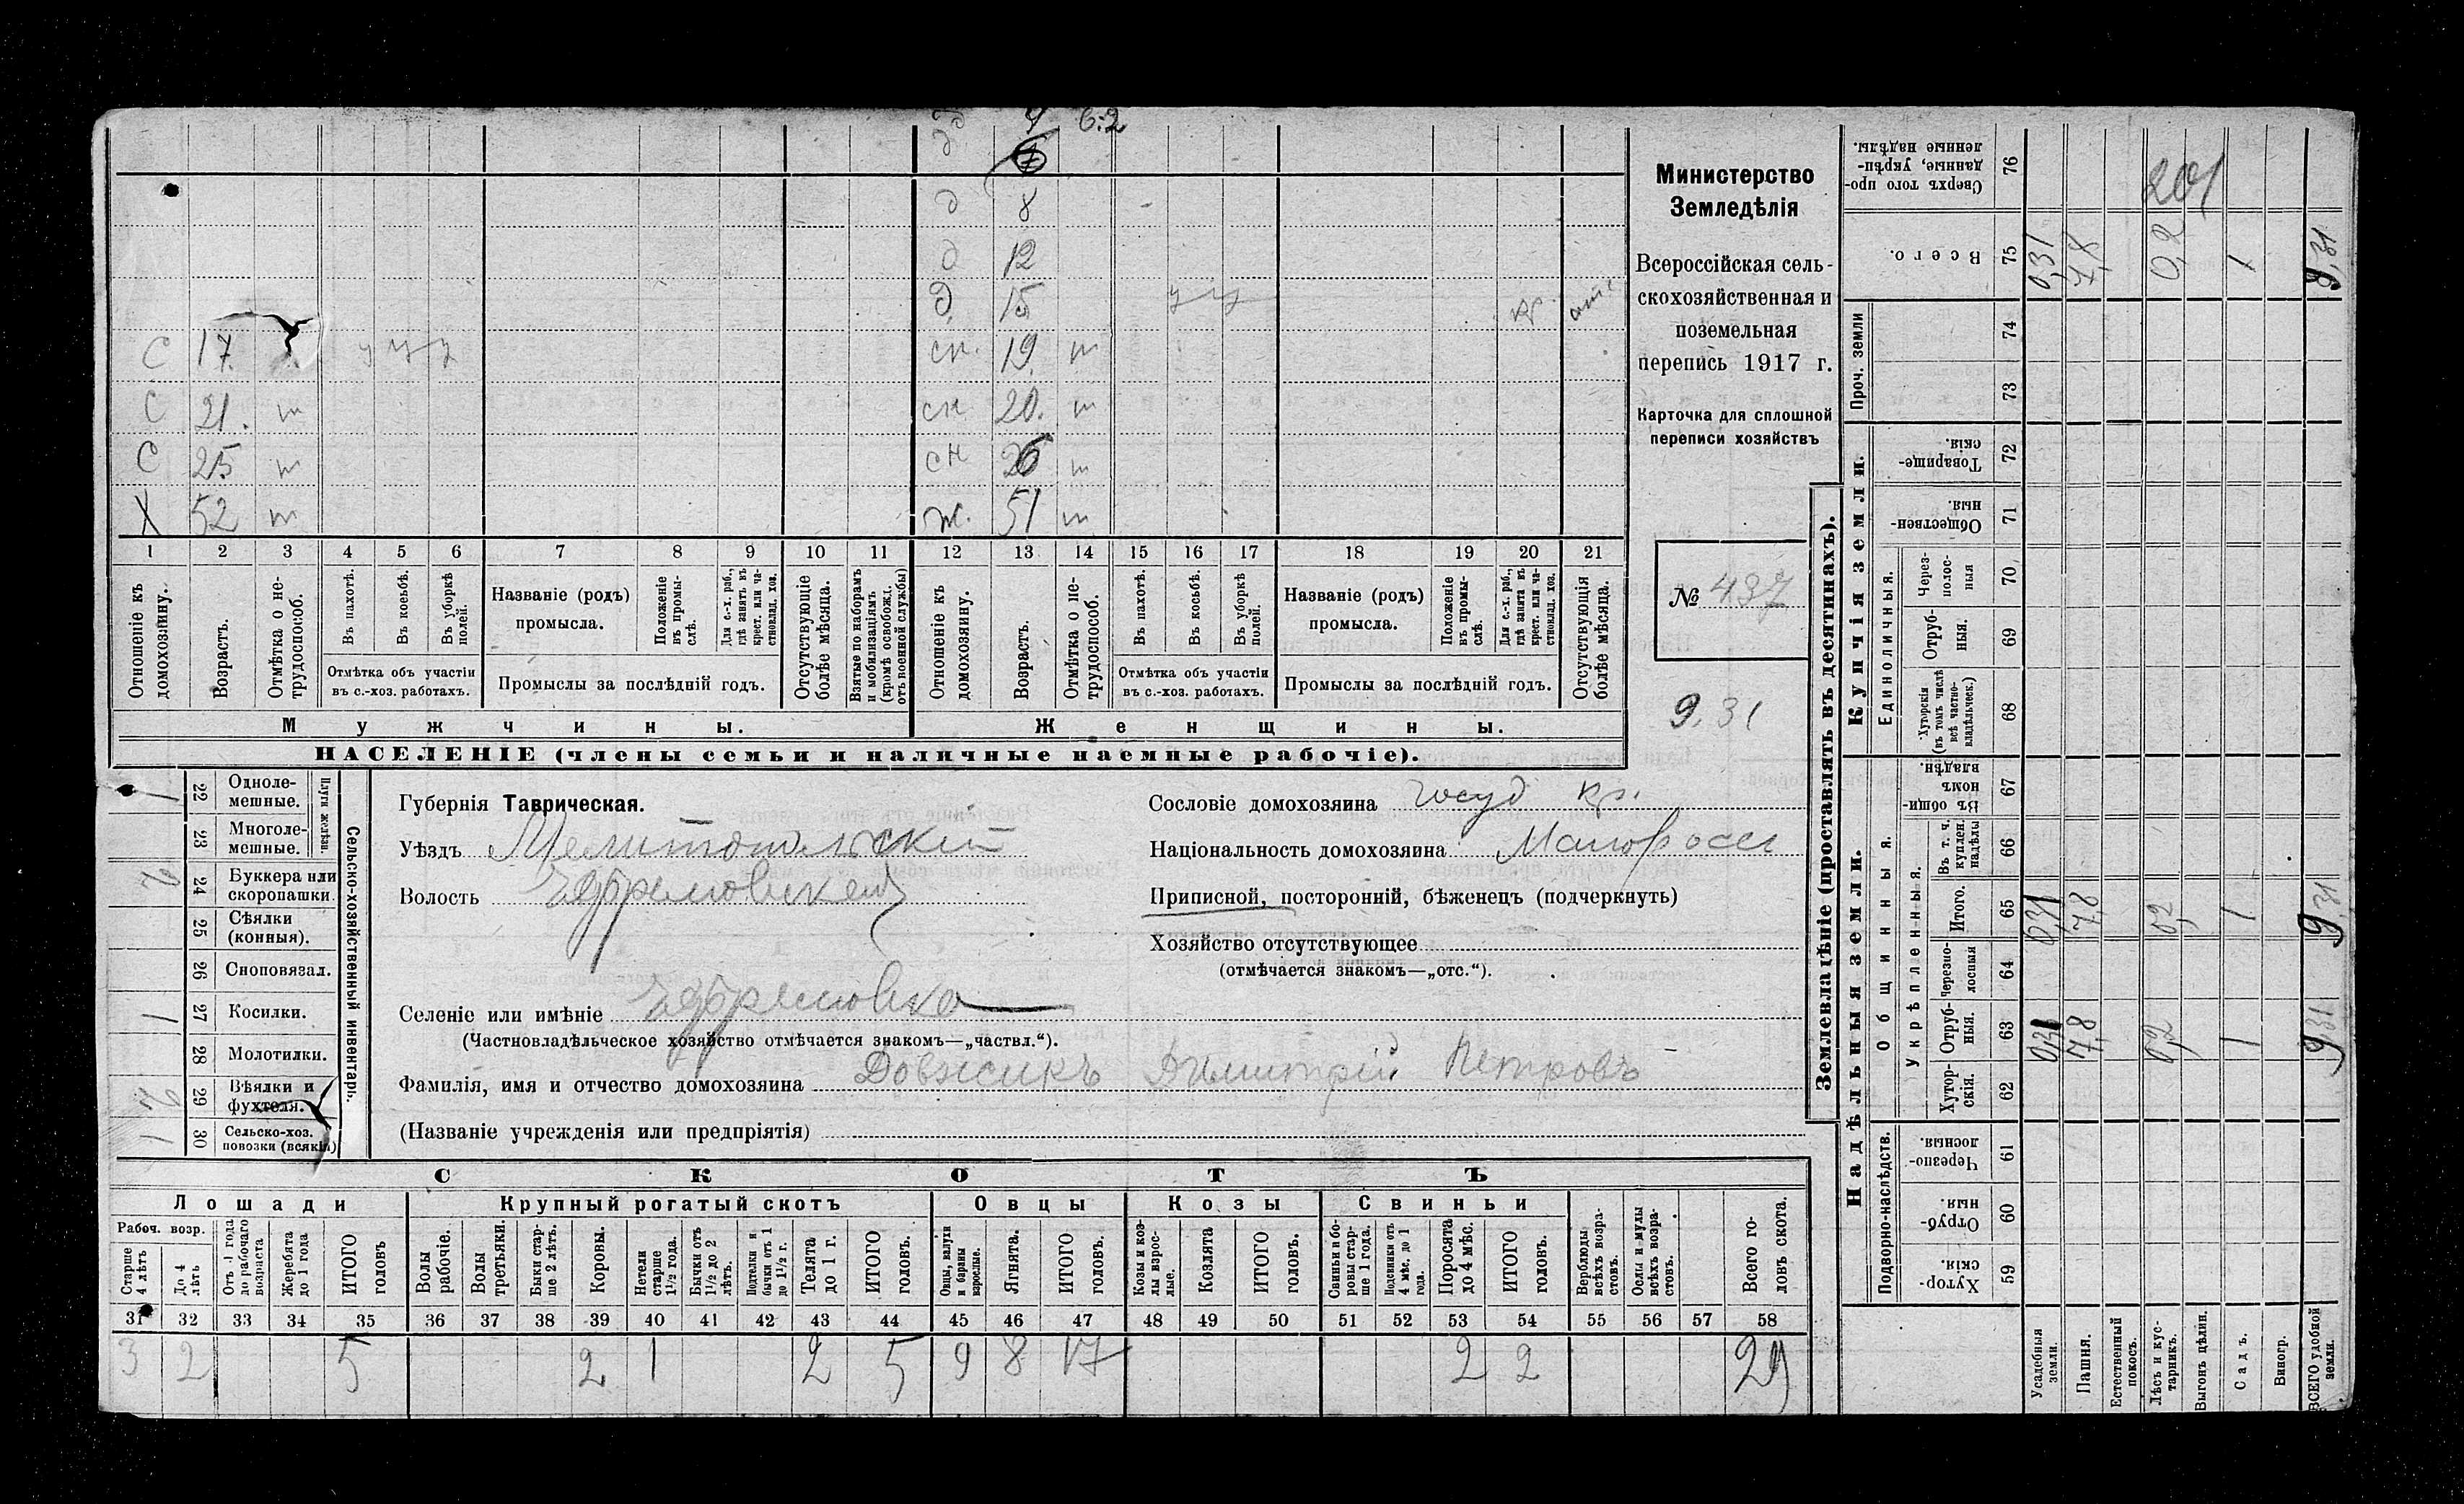 д 4 6:2
д 8
д 12
д 15 у у кр. отс
С 17. у у у сн. 19. т
С 21. т сн 20. т
С 25 т сн 26 т
Х 52 т ж. 51 т
1 2 3 4 5 6 7 8 9 10 11 12 13 14 15 16 17 18 19 20 21
Отношеніе къ домохозяину.
Возрастъ.
Отмѣтка о не-трудоспособ.
Въ пахотѣ.
Въ косьбѣ.
Въ уборкѣ полей.
Отмѣтка объ участіи
въ с.-хоз. работахъ.
Названіе (родъ)
промысла.
Положеніе въ промы-слѣ.
Для с.-х. раб., гдѣ занятъ въ крест. или ча-стновлад. хоз.
Промыслы за послѣдній годъ.
Отсутствующіе болѣе мѣсяца.
Взятые по наборамъ и мобилизаціямъ (кромѣ освобожд. отъ военной службы)
Отношеніе къ домохозяину.
Возрастъ.
Отмѣтка о не-трудоспособ.
Въ пахотѣ.
Въ косьбѣ.
Въ уборкѣ полей.
Отмѣтка объ участіи
въ с.-хоз. работахъ.
Названіе (родъ)
промысла.
Положеніе въ промы-слѣ.
Для с.-х. раб., гдѣ занята въ крест. или ча-стновлад. хоз.
Промыслы за послѣдній годъ.
Отсутствующія болѣе мѣсяца.
Мужчины.
Женщины.
НАСЕЛЕНІЕ (члены семьи и наличные наемные рабочіе).
Министерство
Земледѣлія
Всероссійская сель-
скохозяйственная и
поземельная
перепись 1917 г.
Карточка для сплошной
переписи хозяйствъ
№ 437
9.31
Сельско-хозяйственный инвентарь.
Плуги желѣзн.
22 Одноле-мешные. 1
23 Многоле-мешные.
24 Буккера или скоропашки.
25 Сѣялки (конныя).
26 Сноповязал.
27 Косилки. 1
28 Молотилки.
29 Вѣялки и фухтеля.
30 Сельско-хоз. повозки (всякія) 1
Губернія Таврическая.
Уѣздъ Мелитопольскій
Волость Ефремовская
Селеніе или имѣніе Ефремовка
(Частновладѣльческое хозяйство отмѣчается знакомъ—„частвл.“).
Фамилія, имя и отчество домохозяина Довжикъ Димитрій Петровъ
(Названіе учрежденія или предпріятія)
Сословіе домохозяина Госуд кр.
Національность домохозяина Малоросс
Приписной, посторонній, бѣженецъ (подчеркнуть)
Хозяйство отсутствующее
(отмѣчается знакомъ—„отс.“).
СКОТЪ
Лошади Крупный рогатый скотъ Овцы Козы Свиньи
Рабоч. возр.
Старше 4 лѣтъ
До 4 лѣтъ
Отъ 1 года до рабочаго возраста
Жеребята до 1 года
ИТОГО головъ
Волы рабочіе.
Волы третьяки.
Быки стар-ше 2 лѣтъ.
Коровы.
Нетели старше 1½ года.
Бычки отъ 1½ до 2 лѣтъ.
Подтелки и бычки отъ 1 до 1½ г.
Телята до 1 г.
ИТОГО головъ.
Овцы, валухи и бараны взрослые.
Ягнята.
ИТОГО головъ.
Козы и коз-лы взрос-лые.
Козлята
ИТОГО головъ.
Свиньи и бо-ровы стар-ше 1 года.
Подсвинки отъ 4 мѣс. до 1 года.
Поросята до 4 мѣс.
ИТОГО головъ.
Верблюды всѣхъ возра-стовъ.
Ослы и мулы всѣхъ возра-стовъ.
Всего го-ловъ скота.
31 32 33 34 35 36 37 38 39 40 41 42 43 44 45 46 47 48 49 50 51 52 53 54 55 56 57 58
3 2 5 2 1 2 5 9 8 17 2 2 29
Землевладѣніе (проставлять въ десятинахъ).
Надѣльныя земли.
Купчія земли.
Проч. земли
Подворно-наслѣдств.
Общинныя.
Укрѣпленныя.
Единоличныя.
Хутор-скія. 59
Отруб-ныя. 60
Черезпо-лосныя 61
Хутор-скія. 62
Отруб-ныя. 63
Черезпо-лосныя 64
Итого. 65
Въ т. ч. куплен. надѣлы 66
Въ общи-номъ владѣн. 67
Хуторскія (въ томъ числѣ всѣ частно-владѣльческ.) 68
Отруб-ныя. 69
Через-полос-ныя 70
Обществен-ныя. 71
Товарище-скія. 72
73
74
Всего. 75
Сверхъ того про-данные, укрѣп-ленные надѣлы. 76
Усадебныя земли.
Пашня.
Естественный покосъ.
Лѣсъ и кус-тарникъ.
Выгонъ цѣлин.
Садъ.
Виногр.
ВСЕГО удобной земли.
0,31 7,8 0,2 1 9,31
0,31 7,8 0,2 1 9,31
0,31 7,8 0,2 1 9,31
201